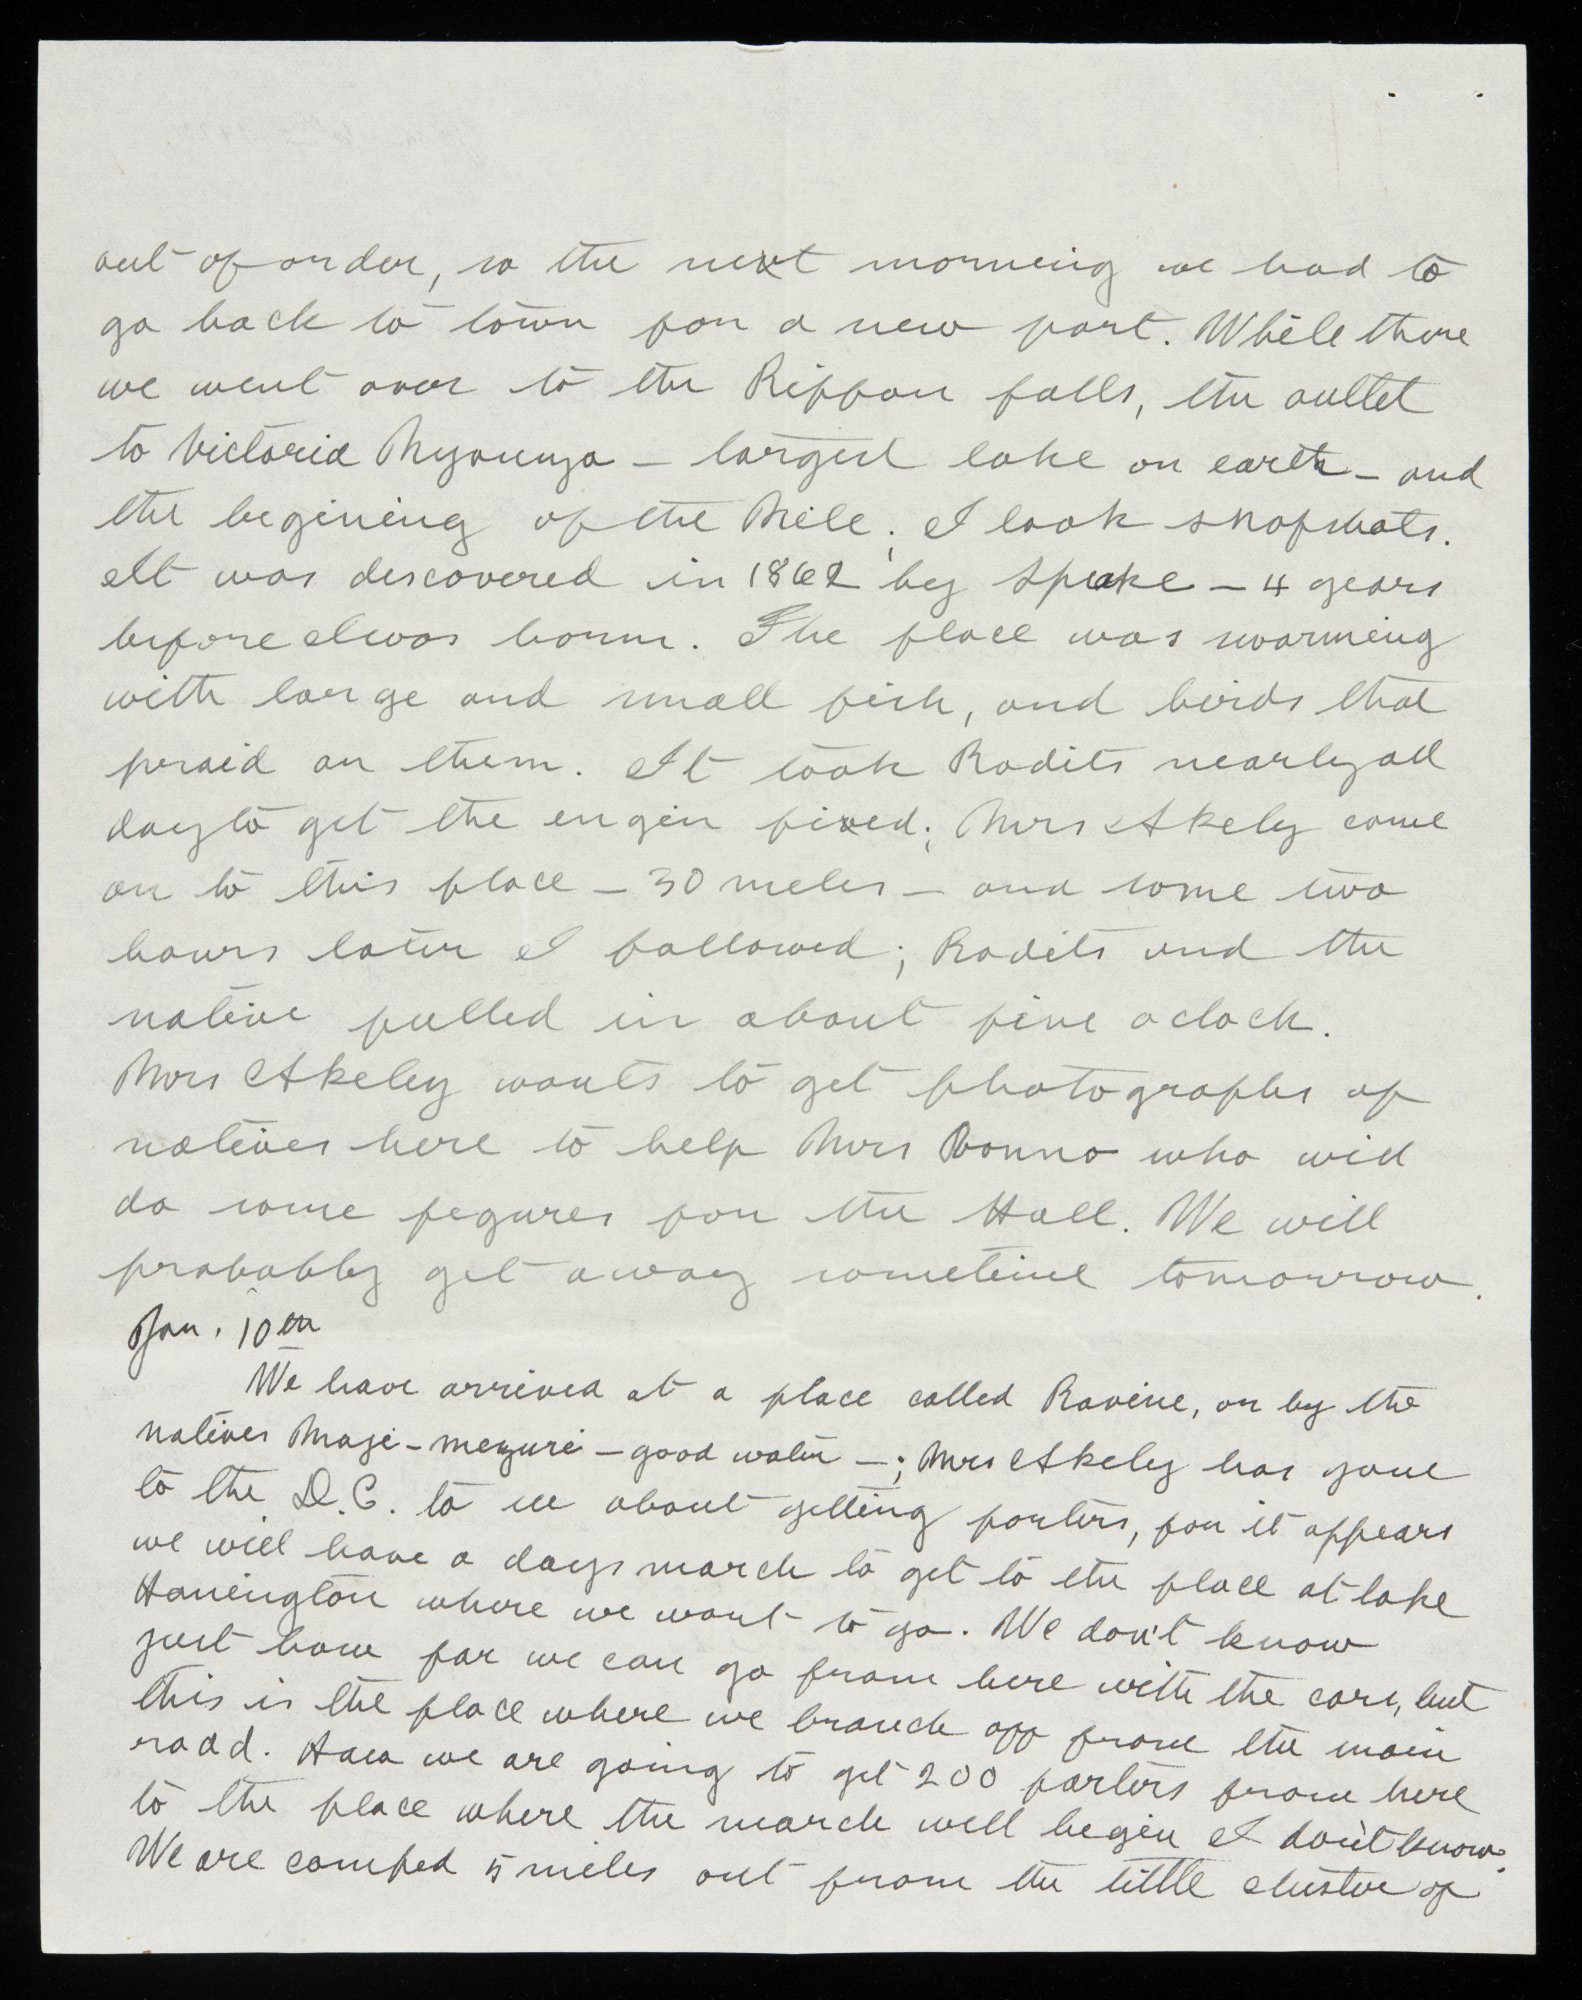 out of order, so the next morning we had to
go back to town for a new part. While there
we went over to the Rippon falls, the outlet
to Victoria Nyanza – largest lake on earth – and
the begining of the Nile; I took snapshots.
It was descovered in 1862 by Speake – 4 years
before I was born. The place was swarming
with large and small fish, and birds that
praid on them. It took Rodits nearly all
day to get the engin fixed; Mrs Akeley came
on to this place – 30 miles – and some two
hours later I followed; Rodits and the
native pulled in about five o clock.
Mrs Akeley wants to get photographs of
natives here to help Mrs who will
do some figures for the Hall. We will
probably get away sometime tomorrow.
Jan. 10th
We have arrived at a place called Ravine, or by the
natives Maji-mezuri – good water –; Mrs Akeley has gone
to the D.C. to see about getting porters, for it appears
we will have a days march to get to the place at lake
Hanington where we want to go. We don't know
just how far we can go from here with the cars, but
this is the place where we branch off from the main
roadd. How we are going to get 200 porters from here
to the place where the march will begin I don't know.
We are camped 5 miles out from the little cluster of